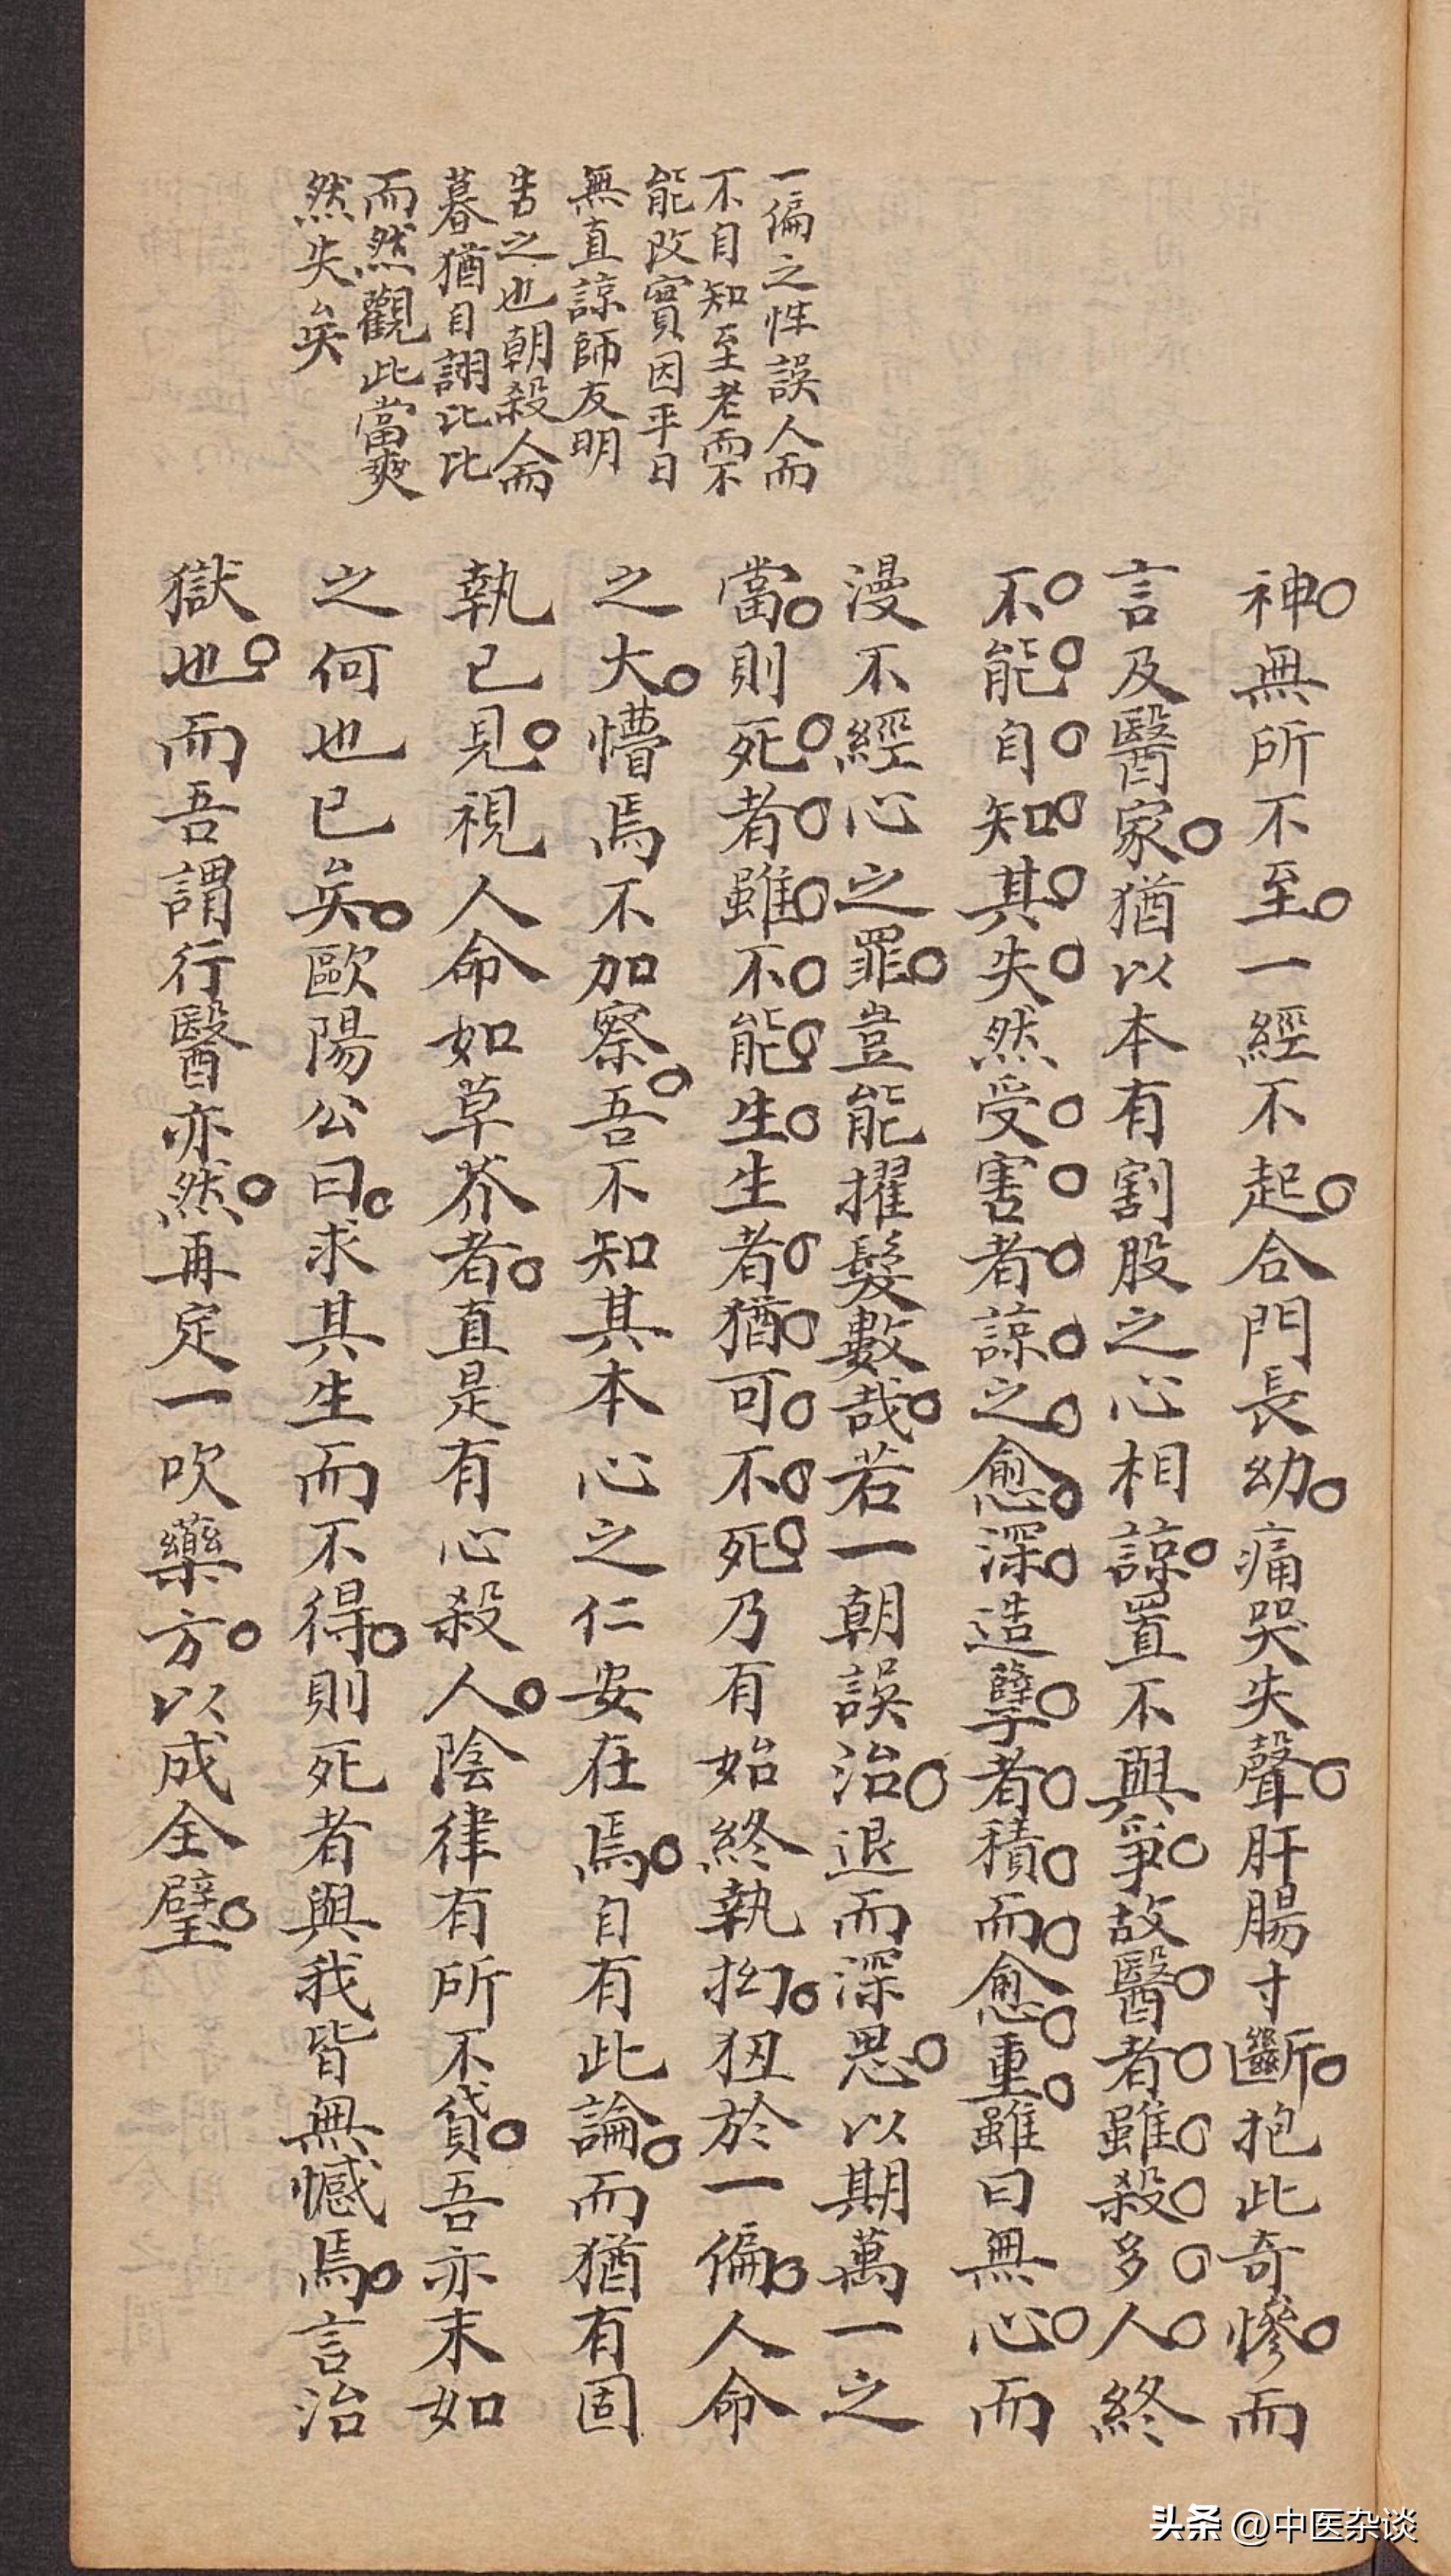 一偏之性誤人而
不自知至老而不
能改實因平日
無直諒師友明
告之也朝殺人而
暮猶自詡比比
而然觀此當爽
然失矣
神無所不至一經不起合門長幼痛哭失聲肝腸寸斷抱此奇慘而
言及醫家猶以本有割股之心相諒置不與爭故醫者雖殺多人終
不能自知其失然受害者諒之愈深造孽者積而愈重雖曰無心而
漫不經心之罪豈能擢髮數哉若一朝誤治退而深思以期萬一之
當則死者雖不能生生者猶可不死乃有始終執拗狃於一偏人命
之大懵焉不加察吾不知其本心之仁安在焉自有此論而猶有固
執已見視人命如草芥者直是有心殺人陰律有所不貸吾亦末如
之何也已矣歐陽公曰求其生而不得則死者與我皆無憾焉言治
獄也而吾謂行醫亦然再定一吹藥方以成全璧
头条 @中医杂谈